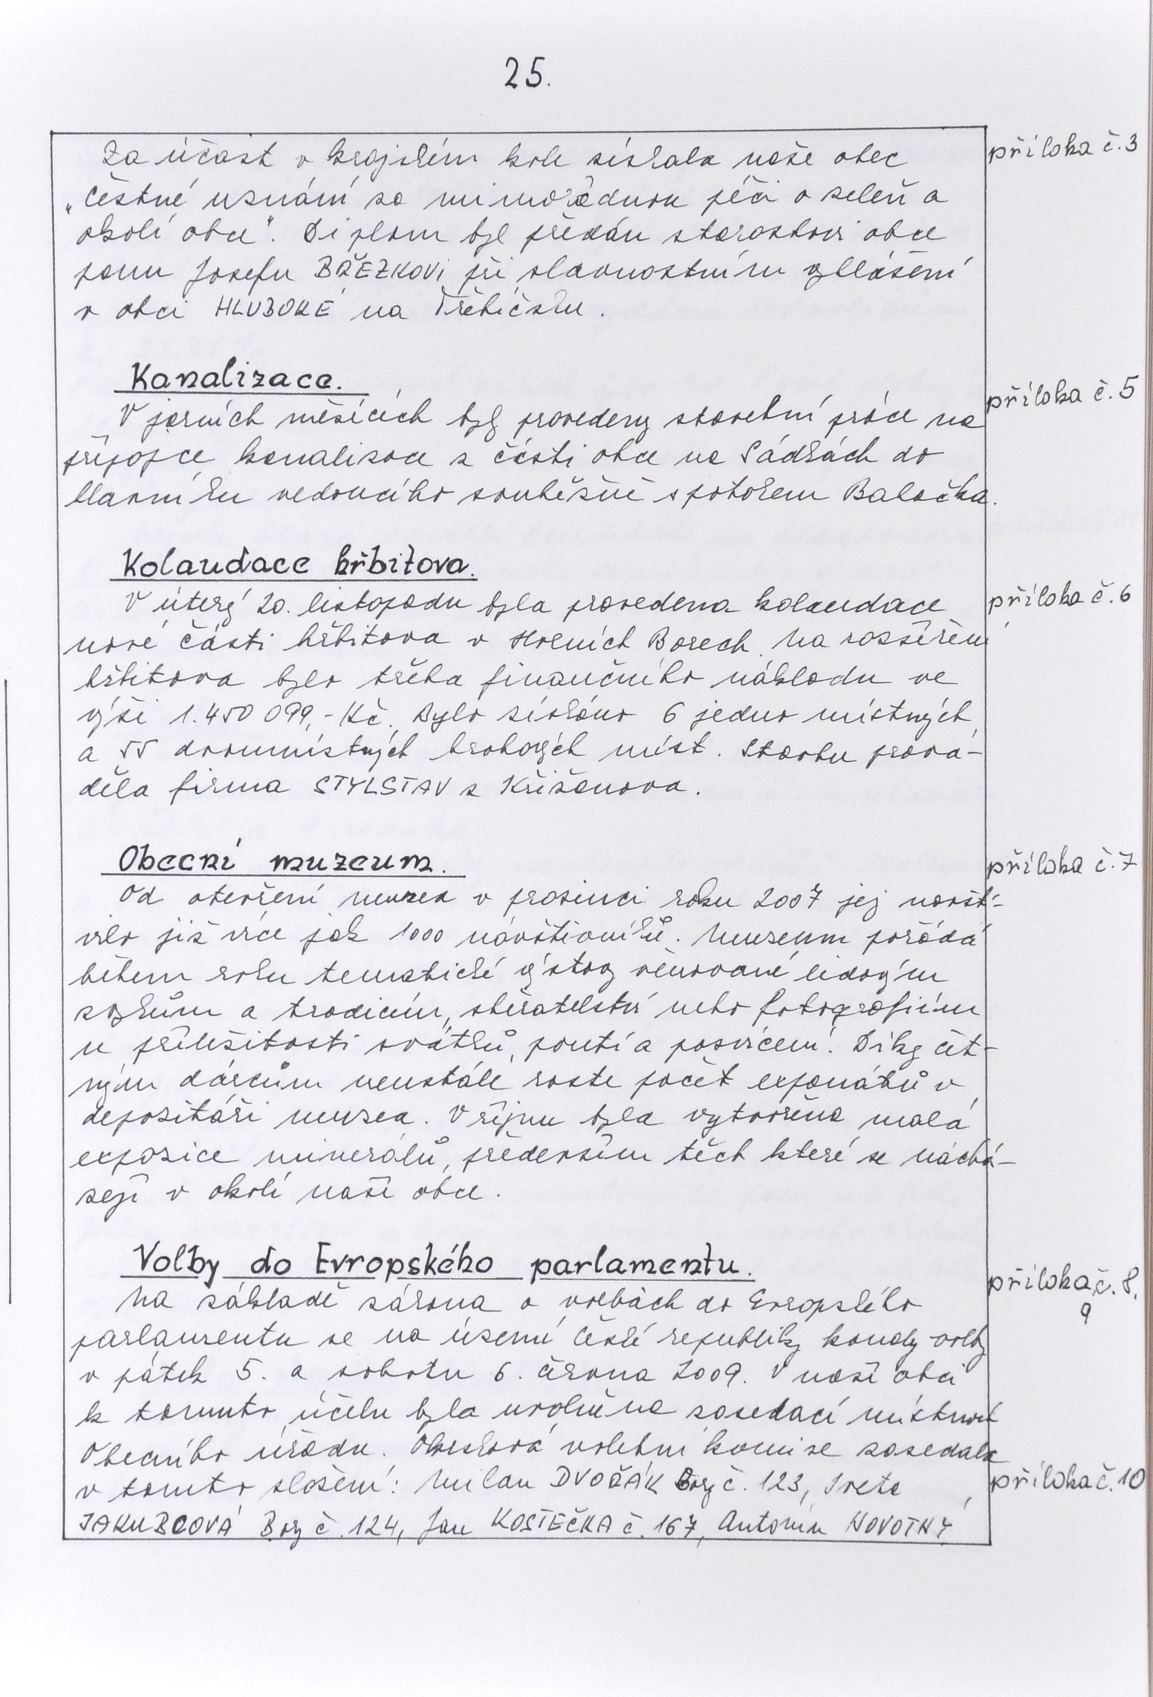 25.
Za účast v krajském kole získala naše obec
příloha č.3
„Čestné uznání za mimořádnou péči o zeleň a
okolí obce". Diplom byl předán starostovi obce
panu Josefu BŘEZKOVI při slavnostním vyhlášení
v obci HLUBOKÉ na Třebíčsku.
Kanalizace.
příloha č.5
V jarních měsících byly provedeny stavební práce na
přípojce kanalizace z části obce na Sádkách do
hlavníku vedoucího souběžně s potokem Baločka.
Kolaudace hřbitova.
V úterý 20. listopadu byla provedena kolaudace
příloha č.6
nové části hřbitova v Horních Borech. Na rozšíření
hřbitova bylo třeba finančního nákladu ve
výši 1.450 099,- Kč. Bylo získáno 6 jedno místných
a 55 dvoumístných hrobových míst. Stavbu prová-
děla firma STYLSTAV z Křižanova.
Obecní muzeum.
příloha č.7
Od otevření muzea v prosinci roku 2007 jej navští-
vilo již více jak 1000 návštivníků. Muzeum pořádá
během roku tematické výstavy věnované lidovým
zvykům a tradicím, sběratelství nebo fotografiím
u příležitosti svátků, poutí a posvícení. Díky čet-
ným dárcům neustále roste počet exponátů v
depozitáři muzea. V říjnu byla vytvořena malá
expozice minerálů, především těch které se nachá-
zejí v okolí naší obce.
Volby do Evropského parlamentu.
příloha č.8,
9
Na základě zákona o volbách do Evropského
parlamentu se na území České republiky konaly volby
v pátek 5. a sobotu 6. června 2009. V naší obci
k tomuto účelu byla uvolněna zasedací místnost
Obecního úřadu. Okrsková volební komise zasedala
v tomto složení: Milan DVOŘÁK Bory č. 123, Iveta
příloha č.10
JAKUBCOVÁ Bory č. 124, Jan KOSTEČKA č. 167, Antonín NOVOTNÝ